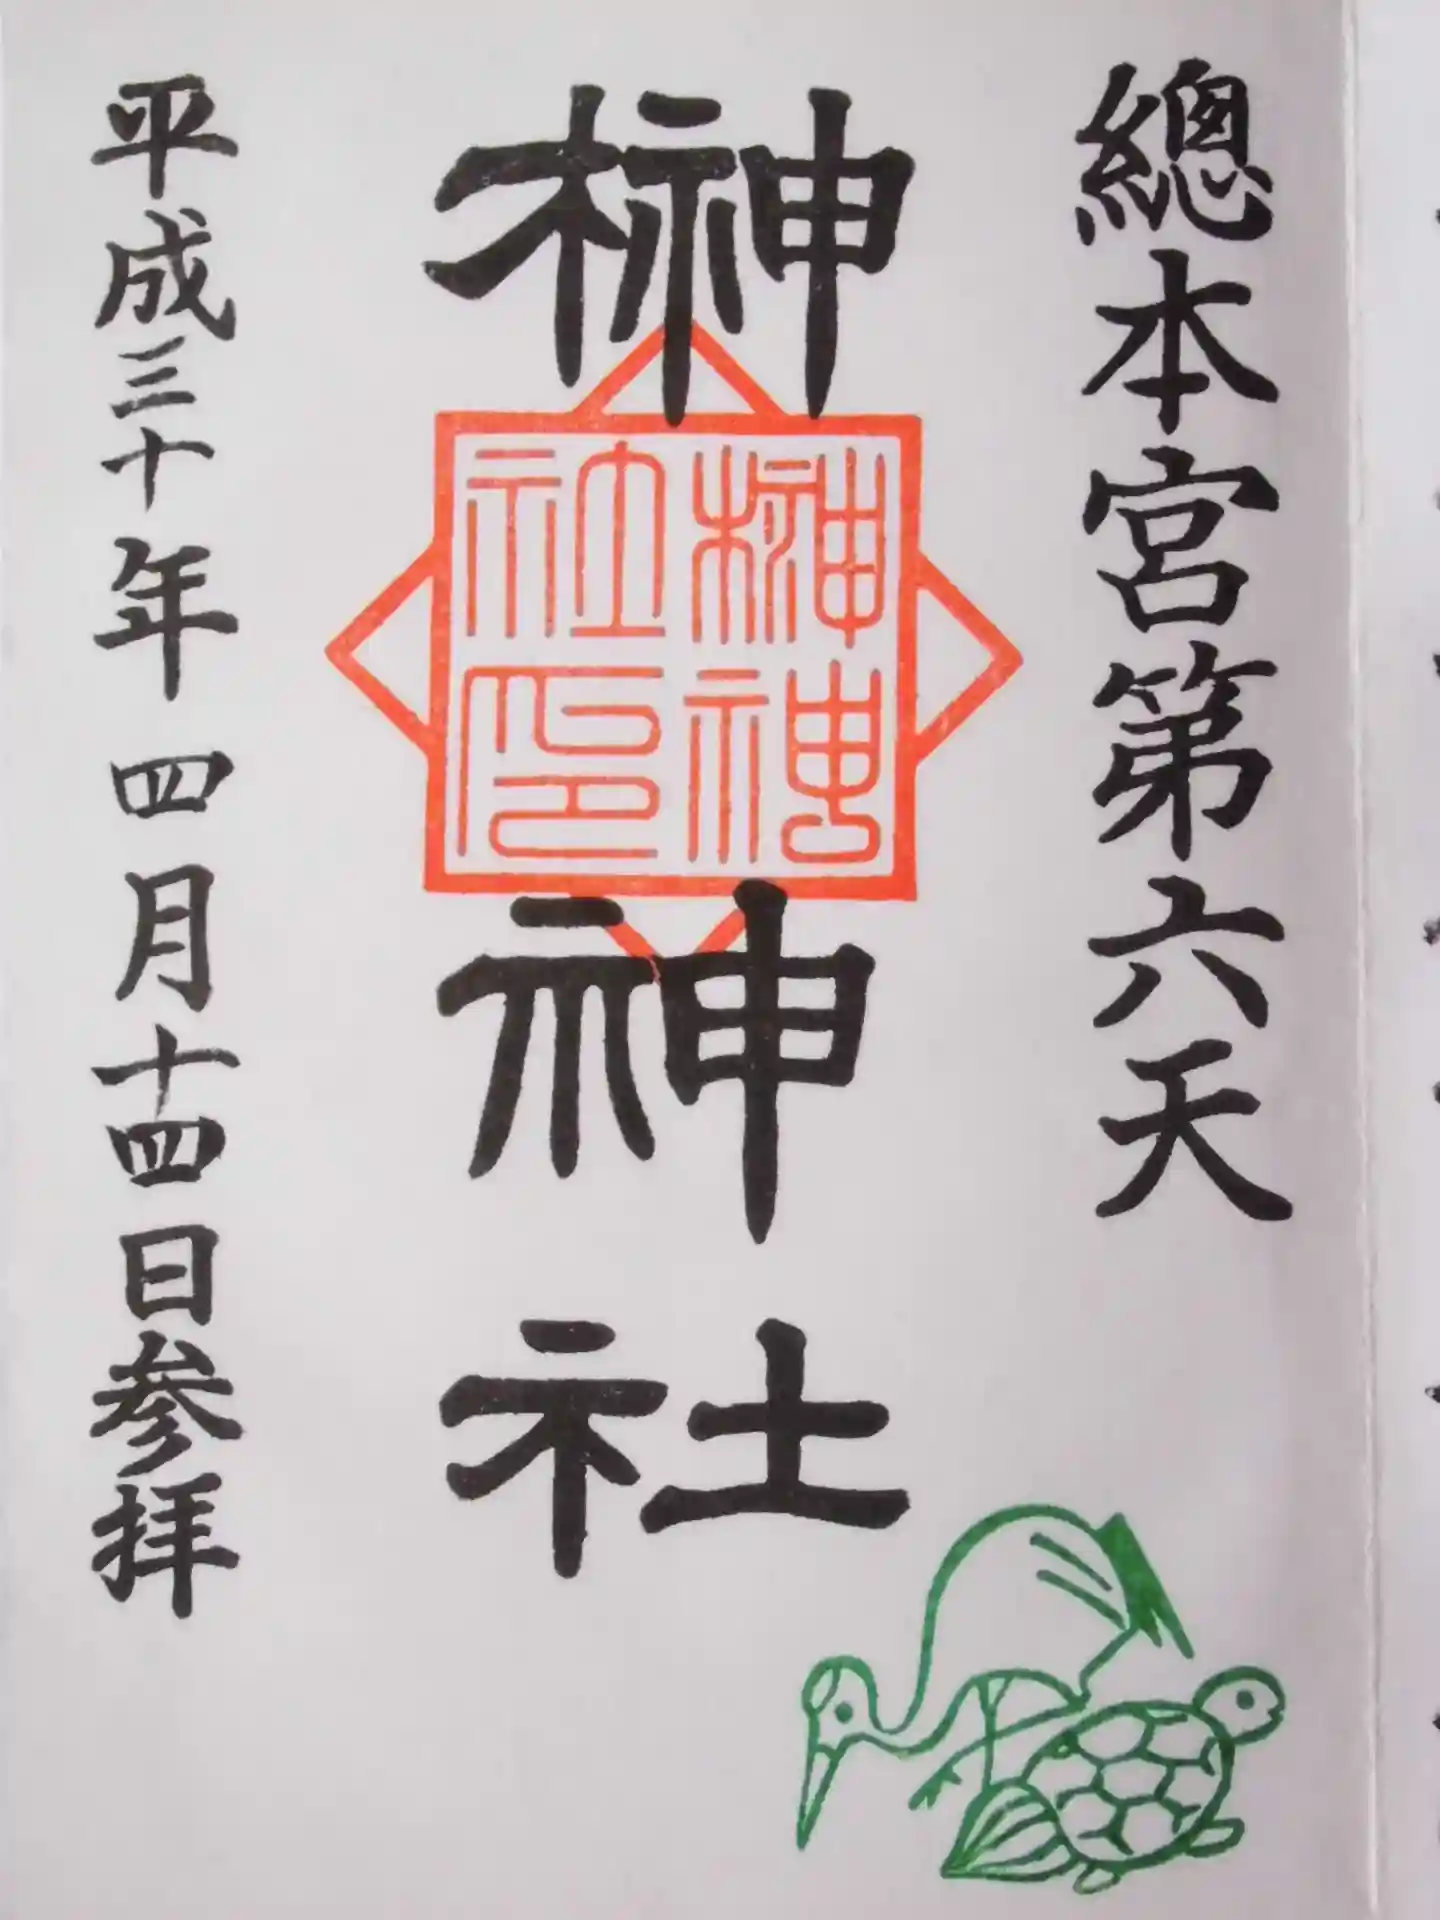 總本宮第六天
榊神社
榊神社印
平成三十年四月十四日参拝